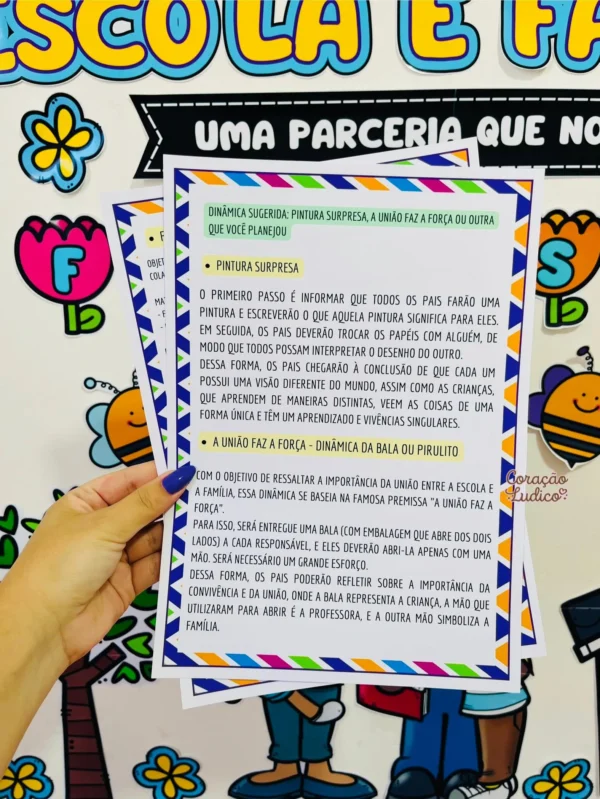 ESCOLA E FA
UMA PARCERIA QUE NO
F
S
DINÂMICA SUGERIDA: PINTURA SURPRESA, A UNIÃO FAZ A FORÇA OU OUTRA
QUE VOCÊ PLANEJOU
• PINTURA SURPRESA
O PRIMEIRO PASSO É INFORMAR QUE TODOS OS PAIS FARÃO UMA
PINTURA E ESCREVERÃO O QUE AQUELA PINTURA SIGNIFICA PARA ELES.
EM SEGUIDA, OS PAIS DEVERÃO TROCAR OS PAPÉIS COM ALGUÉM, DE
MODO QUE TODOS POSSAM INTERPRETAR O DESENHO DO OUTRO.
DESSA FORMA, OS PAIS CHEGARÃO À CONCLUSÃO DE QUE CADA UM
POSSUI UMA VISÃO DIFERENTE DO MUNDO, ASSIM COMO AS CRIANÇAS,
QUE APRENDEM DE MANEIRAS DISTINTAS, VEEM AS COISAS DE UMA
FORMA ÚNICA E TÊM UM APRENDIZADO E VIVÊNCIAS SINGULARES.
• A UNIÃO FAZ A FORÇA - DINÂMICA DA BALA OU PIRULITO
COM O OBJETIVO DE RESSALTAR A IMPORTÂNCIA DA UNIÃO ENTRE A ESCOLA E
A FAMÍLIA, ESSA DINÂMICA SE BASEIA NA FAMOSA PREMISSA "A UNIÃO FAZ A
FORÇA".
PARA ISSO, SERÁ ENTREGUE UMA BALA (COM EMBALAGEM QUE ABRE DOS DOIS
LADOS) A CADA RESPONSÁVEL, E ELES DEVERÃO ABRI-LA APENAS COM UMA
MÃO. SERÁ NECESSÁRIO UM GRANDE ESFORÇO.
DESSA FORMA, OS PAIS PODERÃO REFLETIR SOBRE A IMPORTÂNCIA DA
CONVIVÊNCIA E DA UNIÃO, ONDE A BALA REPRESENTA A CRIANÇA, A MÃO QUE
UTILIZARAM PARA ABRIR É A PROFESSORA, E A OUTRA MÃO SIMBOLIZA A
FAMÍLIA.
Coração
Ludico